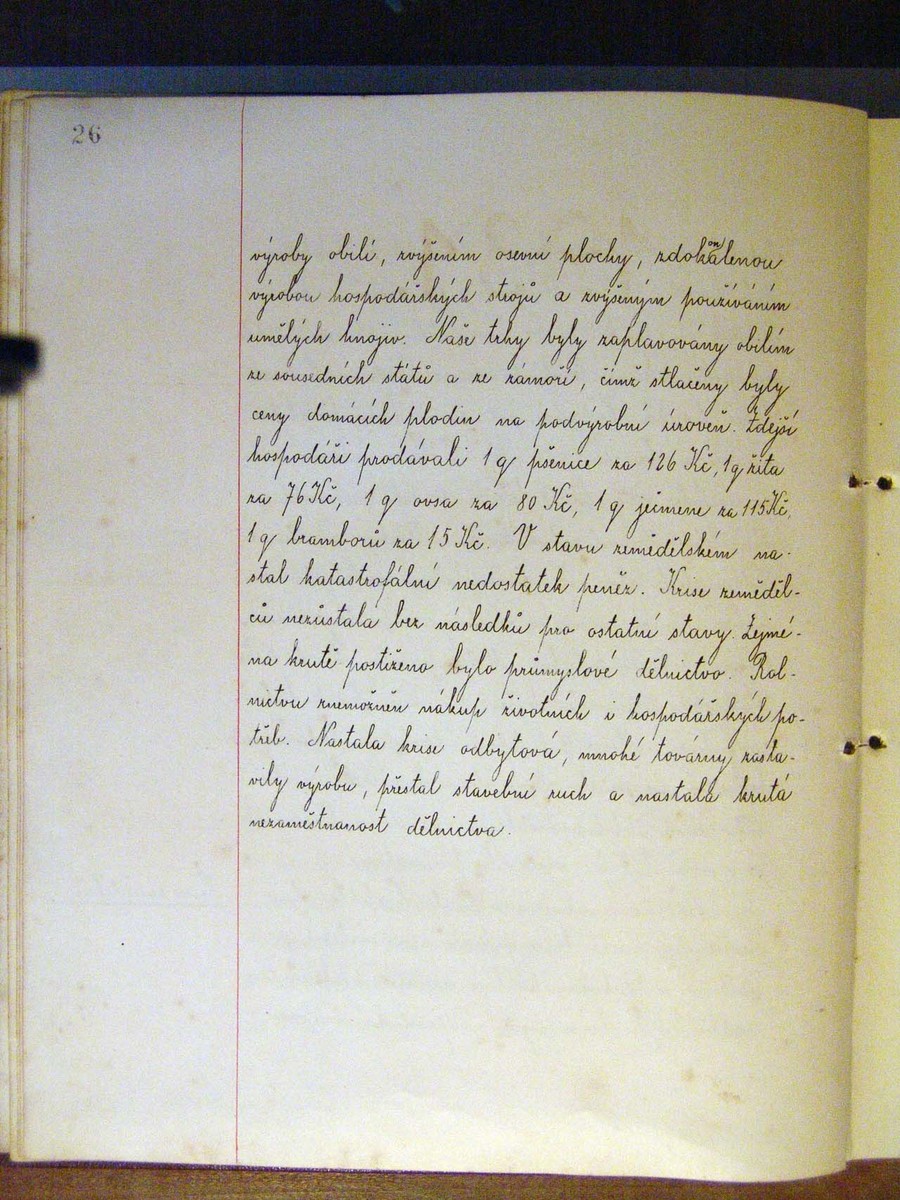 26
výroby obilí, zvýšením osevní plochy, zdokonalenou
výrobou hospodářských strojů a zvýšeným používáním
umělých hnojiv. Naše trhy byly zaplavovány obilím
ze sousedních států a ze zámoří, čímž stlačeny byly
ceny domácích plodin na podvýrobní úroveň. Zdejší
hospodáři prodávali 1 q pšenice za 126 Kč, 1 q žita
za 76 Kč, 1 q ovsa za 80 Kč, 1 q ječmene za 115 Kč,
1 q bramborů za 15 Kč. V stavu zemědělském na-
stal katastrofální nedostatek peněz. Krise zeměděl-
ců nezůstala bez následků pro ostatní stavy. Zejmé-
na krutě postiženo bylo průmyslové dělnictvo. Rol-
nictvu znemožněn nákup životních i hospodářských po-
třeb. Nastala krise odbytová, mnohé továrny zasta-
vily výrobu, přestal stavební ruch a nastala krutá
nezaměstnanost dělnictva.